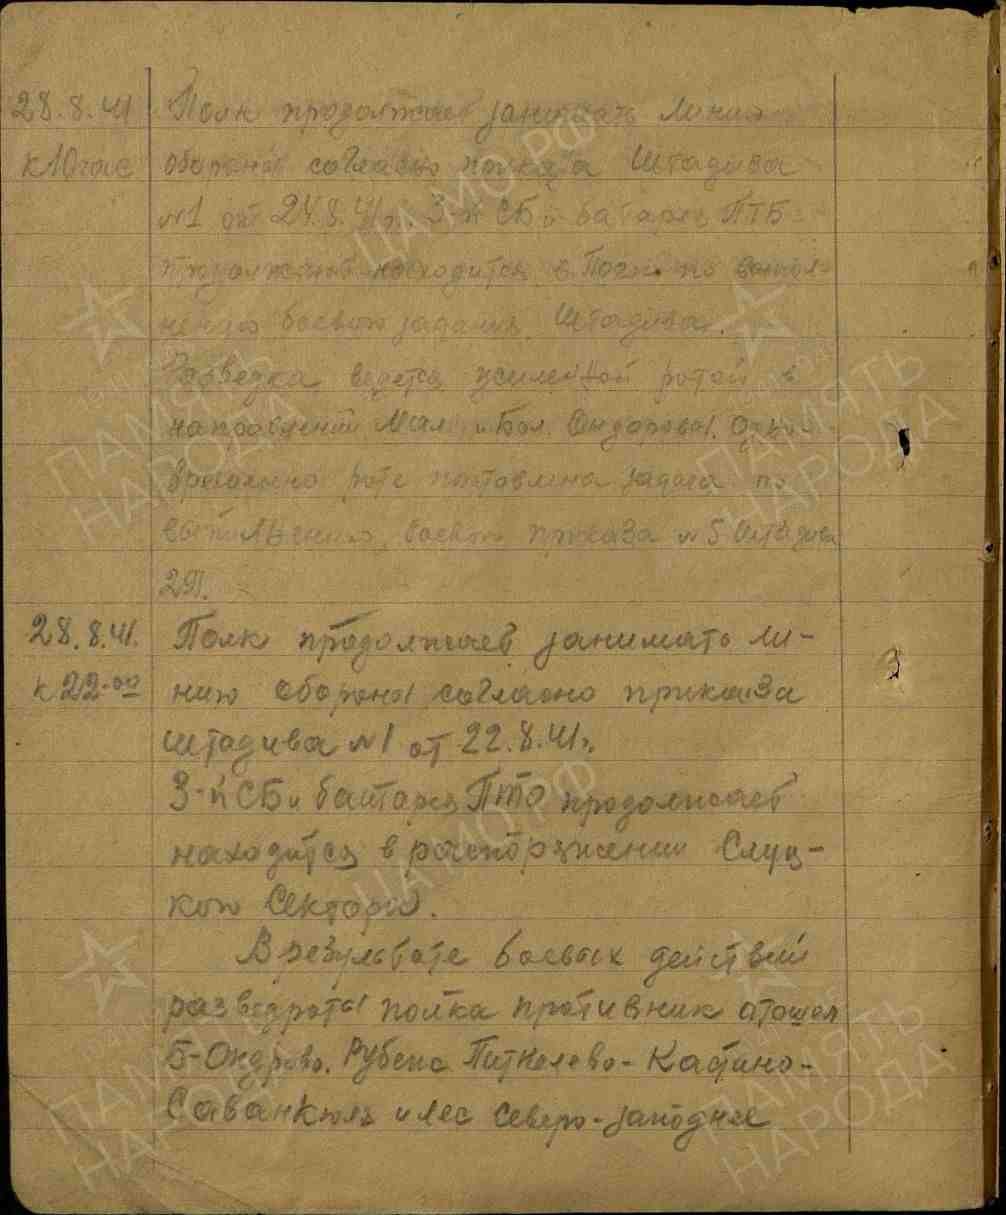 28.8.41 Полк продолжает занимать линию
к 10 час обороны согласно приказа Штадива
№1 от 24.8.41г. 3-й СБ и батарея ПТБ
продолжают находится в по выпол-
нению боевого задания Штадива.
Разведка ведется усиленной ротой в
направлении Мал. и Бол. Ондорово. Одно-
временно роте поставлена задача по
выполнению боевого приказа №5 Штадива
2П.
28.8.41. Полк продолжает занимать ли-
к 22-00 нию обороны согласно приказа
штадива №1 от 22.8.41г.
3-й СБ и батарея ПТО продолжает
находится в распоряжении Слуц-
кого Сектора.
В результате боевых действий
разведроты полка противник отошел
Б-Ондрово. Рубеж Питкелево-Катино-
Саванкюля и лес северо-западнее
ПАМЯТЬ
НАРОДА
ЦАМО РФ